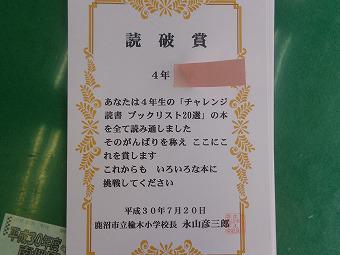 読破賞
4年
あなたは4年生の「チャレンジ
読書 ブックリスト20選」の本
を全て読み通しました
そのがんばりを称え ここにこ
れを賞します
これからも いろいろな本に
挑戦してください
平成30年7月20日
鹿沼市立楡木小学校長 永山彦三郎
平成30年度